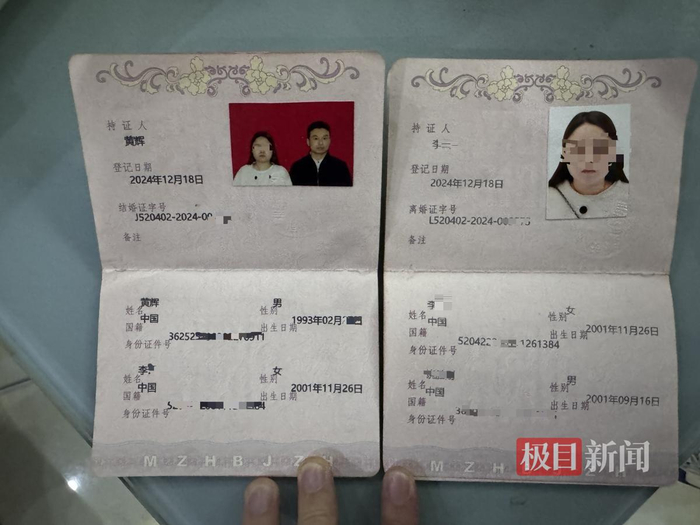 持证人
黄辉
登记日期
2024年12月18日
结婚证字号
J520402-2024-00
备注
黄辉
姓名
性别
男
中国
国籍
出生日期
1993年02月
身份证件号
362525
李
姓名
性别
女
中国
国籍
出生日期
2001年11月26日
身份证件号
MZHBJZH
持证人
登记日期
2024年12月18日
离婚证字号
L520402-2024-00
备注
李
姓名
性别
女
中国
国籍
出生日期
2001年11月26日
身份证件号
姓名
性别
男
中国
国籍
出生日期
2001年09月16日
身份证件号
极目新闻